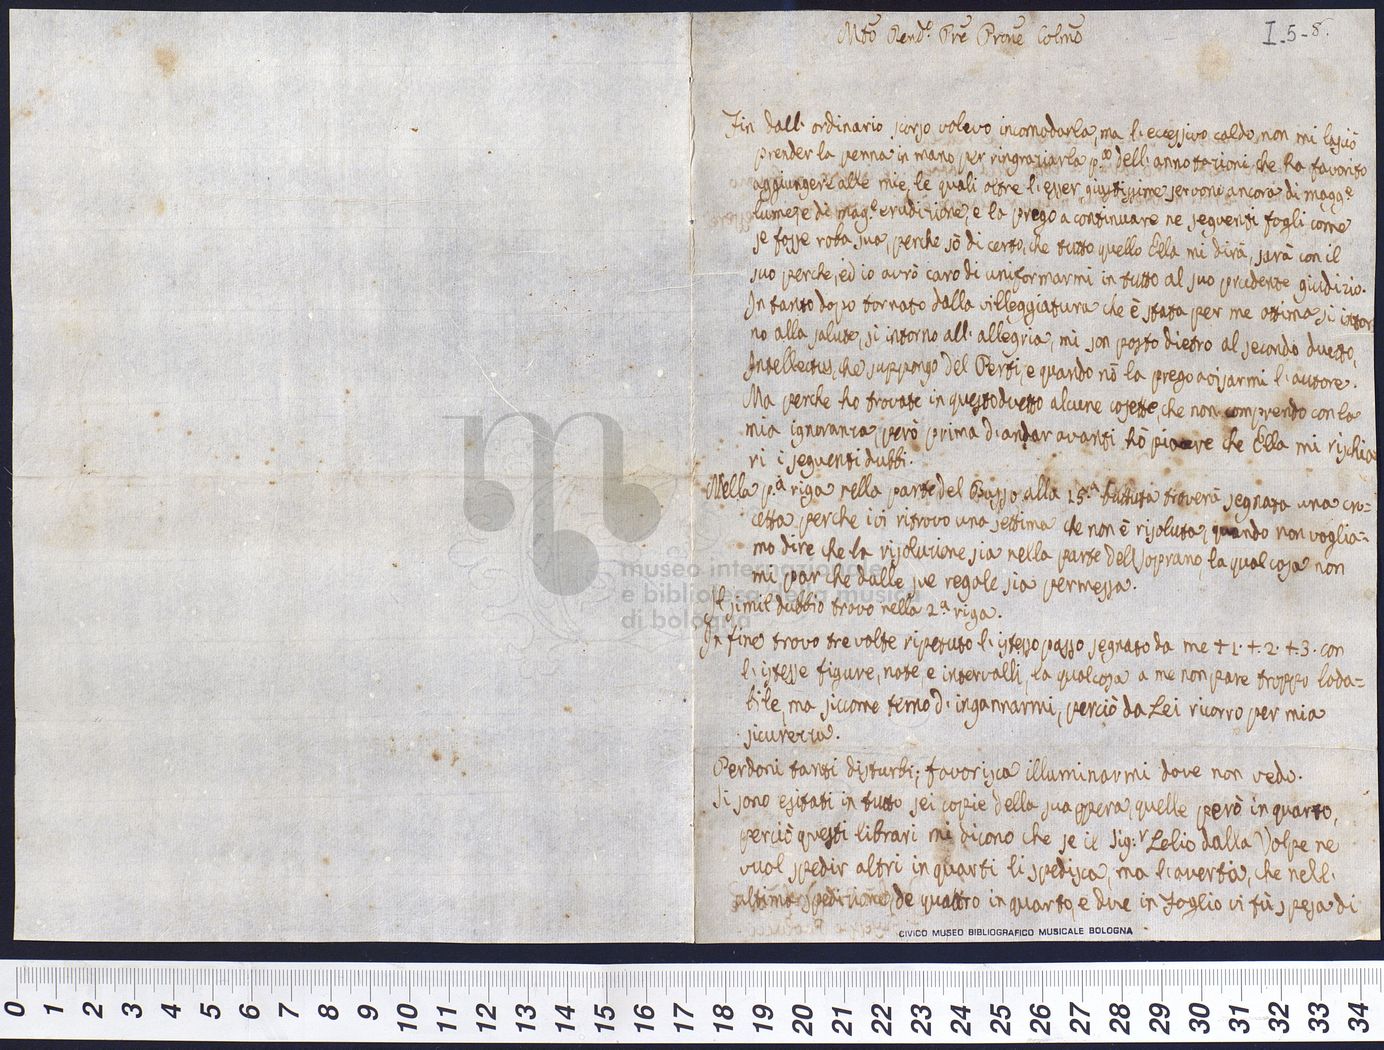 Mto Rendo Pre Prone Colmo
I-5-8.
Fin dall' ordinario scorso volevo incomodarla, ma l'eccessivo caldo, non mi lasciò
prender la penna in mano per ringraziarla pmo dell' annotazioni che ha favorito
aggiungere alle mie, le quali oltre l'esser giustissime servono ancora di magge
lume, e di mage erudizione, e la prego a continuare ne seguenti fogli come
se fosse roba sua, perche sò di certo, che tutto quello Ella mi dirà, sarà con il
suo perche, ed io avrò caro di uniformarmi in tutto al suo prudente giudizio.
In tanto dopo tornato dalla villeggiatura che è stata per me ottima si intor
no alla salute, si intorno all' allegria, mi son posto dietro al secondo duetto,
Intellectus, che suppongo del Perti, e quando nō la prego avisarmi l'autore.
Ma perche ho trovate in questo duetto alcune cosette, che non comprendo con la
mia ignoranza, però prima d'andar avanti hò piacere che Ella mi rischia
ri i seguenti dubbi.
Nella pa riga nella parte del Basso alla 15a battuta troverà segnata una cro=
cetta perche ivi ritrovo una settima che non è risoluta, quando non voglia=
mo dire che la risoluzione sia nella parte del Soprano, la qual cosa non
mi par che dalle sue regole sia permessa.
Il simil dubbio trovo nella 2a riga.
In fine trovo tre volte ripetuto l'istesso passo segnato da me +1. +2. +3. con
l'istesse figure, note, e intervalli, la qual cosa a me non pare troppo loda=
bile, ma siccome temo d'ingannarmi, perciò da Lei ricorro per mia
sicurezza.
Perdoni tanti disturbi; favorisca illuminarmi dove non vedo.
Si sono esitati in tutto sei copie della sua opera, quelle però in quarto,
perciò questi librari mi dicono che se il Sig:r Lelio dalla Volpe ne
vuol spedir altri in quarti li spedisca, ma l'averta, che nell'
altima spedizione, de quattro in quarto, e due in foglio vi fù spesa di
CIVICO MUSEO BIBLIOGRAFICO MUSICALE BOLOGNA
museo internazionale
e biblioteca della musica
di bologna
0 1 2 3 4 5 6 7 8 9 10 11 12 13 14 15 16 17 18 19 20 21 22 23 24 25 26 27 28 29 30 31 32 33 34